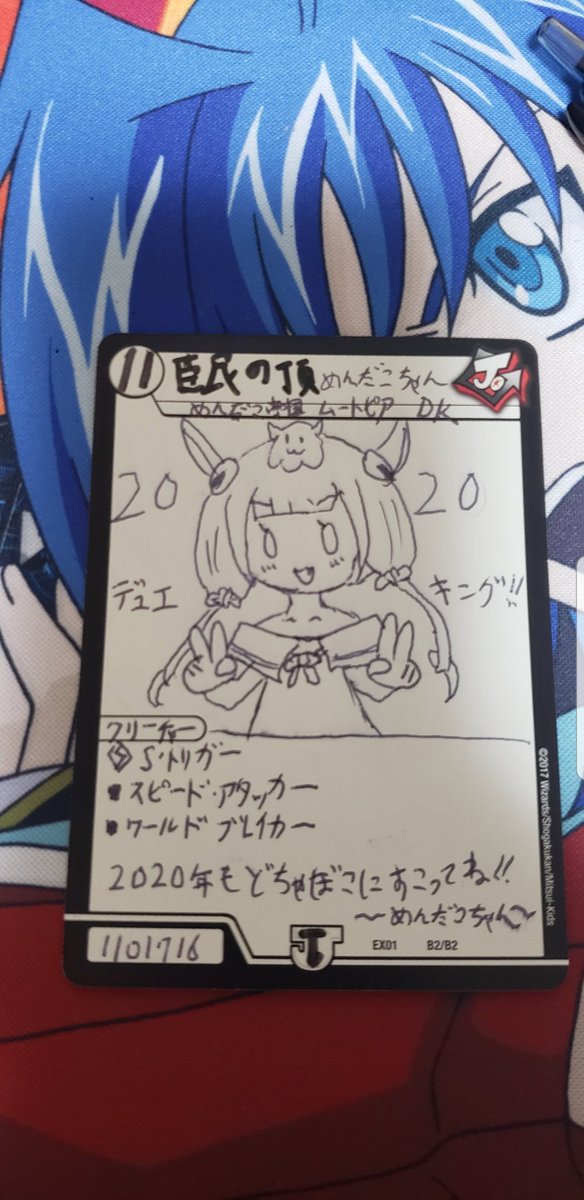 11 臣民の頂 めんだこちゃん
めんだこ帝国 ムートピア DK
20 20
デュエ キング!!
クリーチャー
S・トリガー
■スピード・アタッカー
■ワールド ブレイカー
2020年もどちゃぼこにすこってね!!
～めんだこちゃん～
1101716
EX01 B2/B2
©2017 Wizards/Shogakukan/Mitsui-Kids